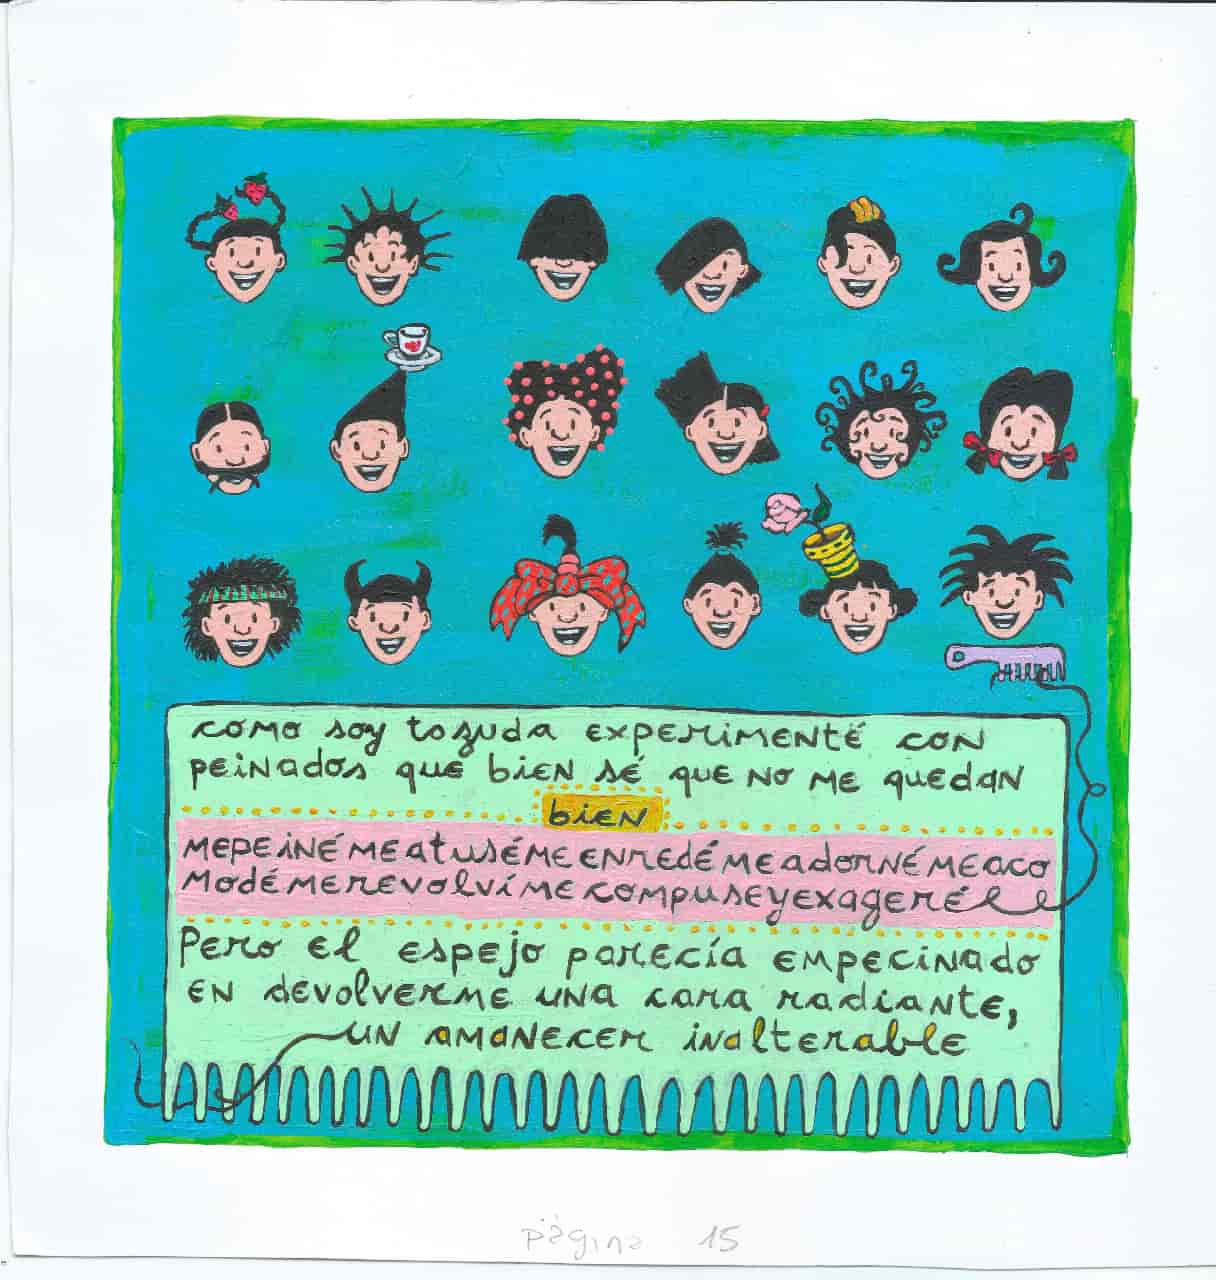 como soy tozuda experimenté con
peinados que bien sé que no me quedan
bien
mepeinémeatusémeenredémeadornémeaco
modémerevolvímecompuseyexageré
Pero el espejo parecía empecinado
en devolverme una cara radiante,
un amanecer inalterable
página 15